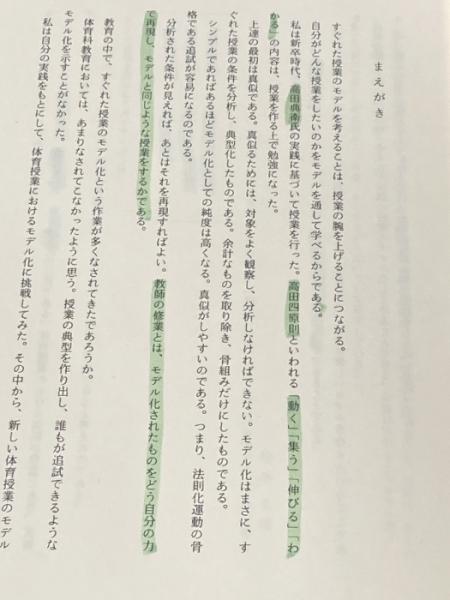 まえがき
すぐれた授業のモデルを考えることは、授業の腕を上げることにつながる。
自分がどんな授業をしたいのかをモデルを通して学べるからである。
私は新卒時代、高田典衛氏の実践に基づいて授業を行った。高田四原則といわれる「動く」「集う」「伸びる」「わ
かる」の内容は、授業を作る上で勉強になった。
上達の最初は真似である。真似るためには、対象をよく観察し、分析しなければできない。モデル化はまさに、す
ぐれた授業の条件を分析し、典型化したものである。余計なものを取り除き、骨組みだけにしたものである。
シンプルであればあるほどモデル化としての純度は高くなる。真似がしやすいのである。つまり、法則化運動の骨
格である追試が容易になるのである。
分析された条件が見えれば、あとはそれを再現すればよい。教師の修業とは、モデル化されたものをどう自分の力
で再現し、モデルと同じような授業をするかである。
教育の中で、すぐれた授業のモデル化という作業が多くなされてきたであろうか。
体育科教育においては、あまりなされてこなかったように思う。授業の典型を作り出し、誰もが追試できるような
モデル化を示すことがなかった。
私は自分の実践をもとにして、体育授業におけるモデル化に挑戦してみた。その中から、新しい体育授業のモデル